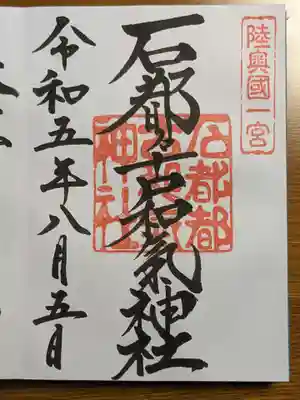 陸奥國一宮
石都々古和気神社
石都都
古和氣
神社
令和五年八月五日